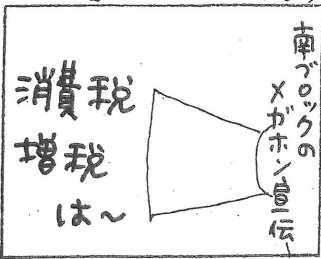 南ブロックの
メガホン宣伝
消費税
増税
は〜